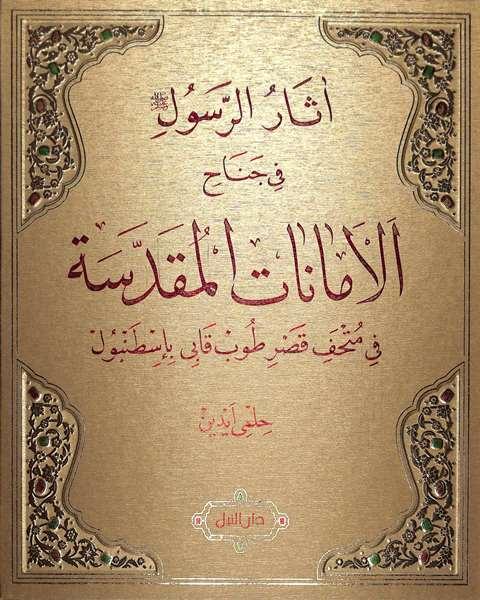 أثار الرسول ﷺ
في جناح
الأمانات المقدسة
في متحف قصر طوب قابي بإسطنبول
حلمي آيدين
دار النيل